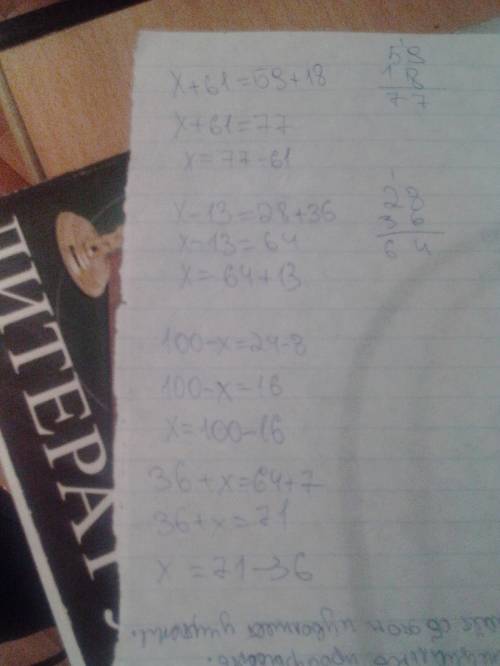 x+61=59+18
x+61=77
x=77-61
59
18
77
x-13=28+36
x-13=64
x=64+13
1
28
36
64
100-x=24-8
100-x=16
x=100-16
36+x=64+7
36+x=71
x=71-36
ЛИТЕРАТУ